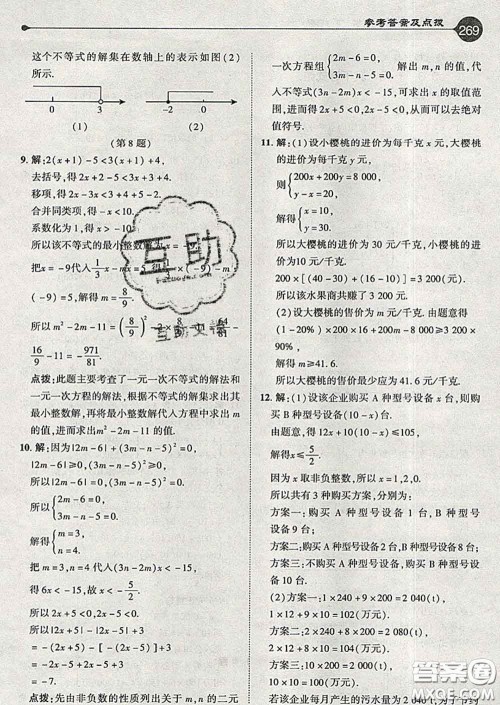 参考答案及点拨 269
这个不等式的解集在数轴上的表示如图(2)
所示.
0 3
-2 0
(1) (2)
(第8题)
9. 解:2(x+1)-5<3(x+1)+4,
去括号,得 2x+2-5<3x+3+4,
移项,得 2x-3x<3+4-2+5,
合并同类项,得 -x<10,
系数化为1,得 x>-10.
所以该不等式的最小整数解为 x=-9.
把x=-9代入
解得 m=8/9,
所以 m²-2m-11=(8/9)²
16/9-11=-971/81.
点拨:此题主要考查了一元一次不等式的解法和
一元一次方程的解法.根据不等式的解集求出其
最小整数解,再将最小整数解代入方程中求出m
的值,进而求出 m²-2m-11 的值.
10. 解:因为|2m-6|+(3m-n-5)²=0,
|2m-6|≥0,(3m-n-5)²≥0,
所以|2m-6|=0,(3m-n-5)²=0.
所以{2m-6=0,
3m-n-5=0.
解得{m=3,
n=4.
把 m=3,n=4 代入(3n-2m)x<-15,
得 6x<-15,故 x<-5/2.
所以 2x+5<0,2x-5<0.
所以|2x+5|-|2x-5|
=-(2x+5)-[-(2x-5)]
=-(2x+5)+(2x-5)
=-2x-5+2x-5
=-10.
点拨:先由非负数的性质列出关于 m,n 的二元
一次方程组{2m-6=0,
3m-n-5=0. 解出 m,n 的值,代
入不等式(3n-2m)x<-15,可求出 x 的取值范
围,得出 2x+5<0,2x-5<0,由此可以去掉绝对
值符号.
11. 解:(1)设小樱桃的进价为每千克 x 元,大樱桃
的进价为每千克 y 元,
则{200x+200y=8 000,
y-x=20,
解得{x=10,
y=30.
所以大樱桃的进价为 30 元/千克,小樱桃的
进价为 10 元/千克.
200×[(40-30)+(16-10)]=3 200(元).
所以该水果商共赚了 3 200 元.
(2)设大樱桃的售价为 m 元/千克,由题意得
解得 m≥41.6.
所以大樱桃的售价最少应为 41.6 元/千克.
12. 解:(1)设该企业购买 A 种型号设备 x 台,则
由题意,得 12x+10(10-x)≤105,
解得x≤5/2.
因为 x 取非负整数,所以 x=1,2,0.
所以共有 3 种购买方案,分别为:
方案一:购买 A 种型号设备 1 台,B 种型号
设备 9 台;
方案二:购买 A 种型号设备2台,B种型号设备 8 台;
方案三:不购买 A 种型号设备,购买 B 种型号设
备 10 台.
(2)方案一:240×1+200×9=2 040(t),
1×12+9×10=102(万元).
方案二:240×2+200×8=2 080(t),
2×12+8×10=104(万元).
方案三:10×200=2 000(t),
10×10=100(万元).
若该企业每月产生的污水量为 2 040 t,为了节约
互助
互助文得
答案圈
MXQE.COM